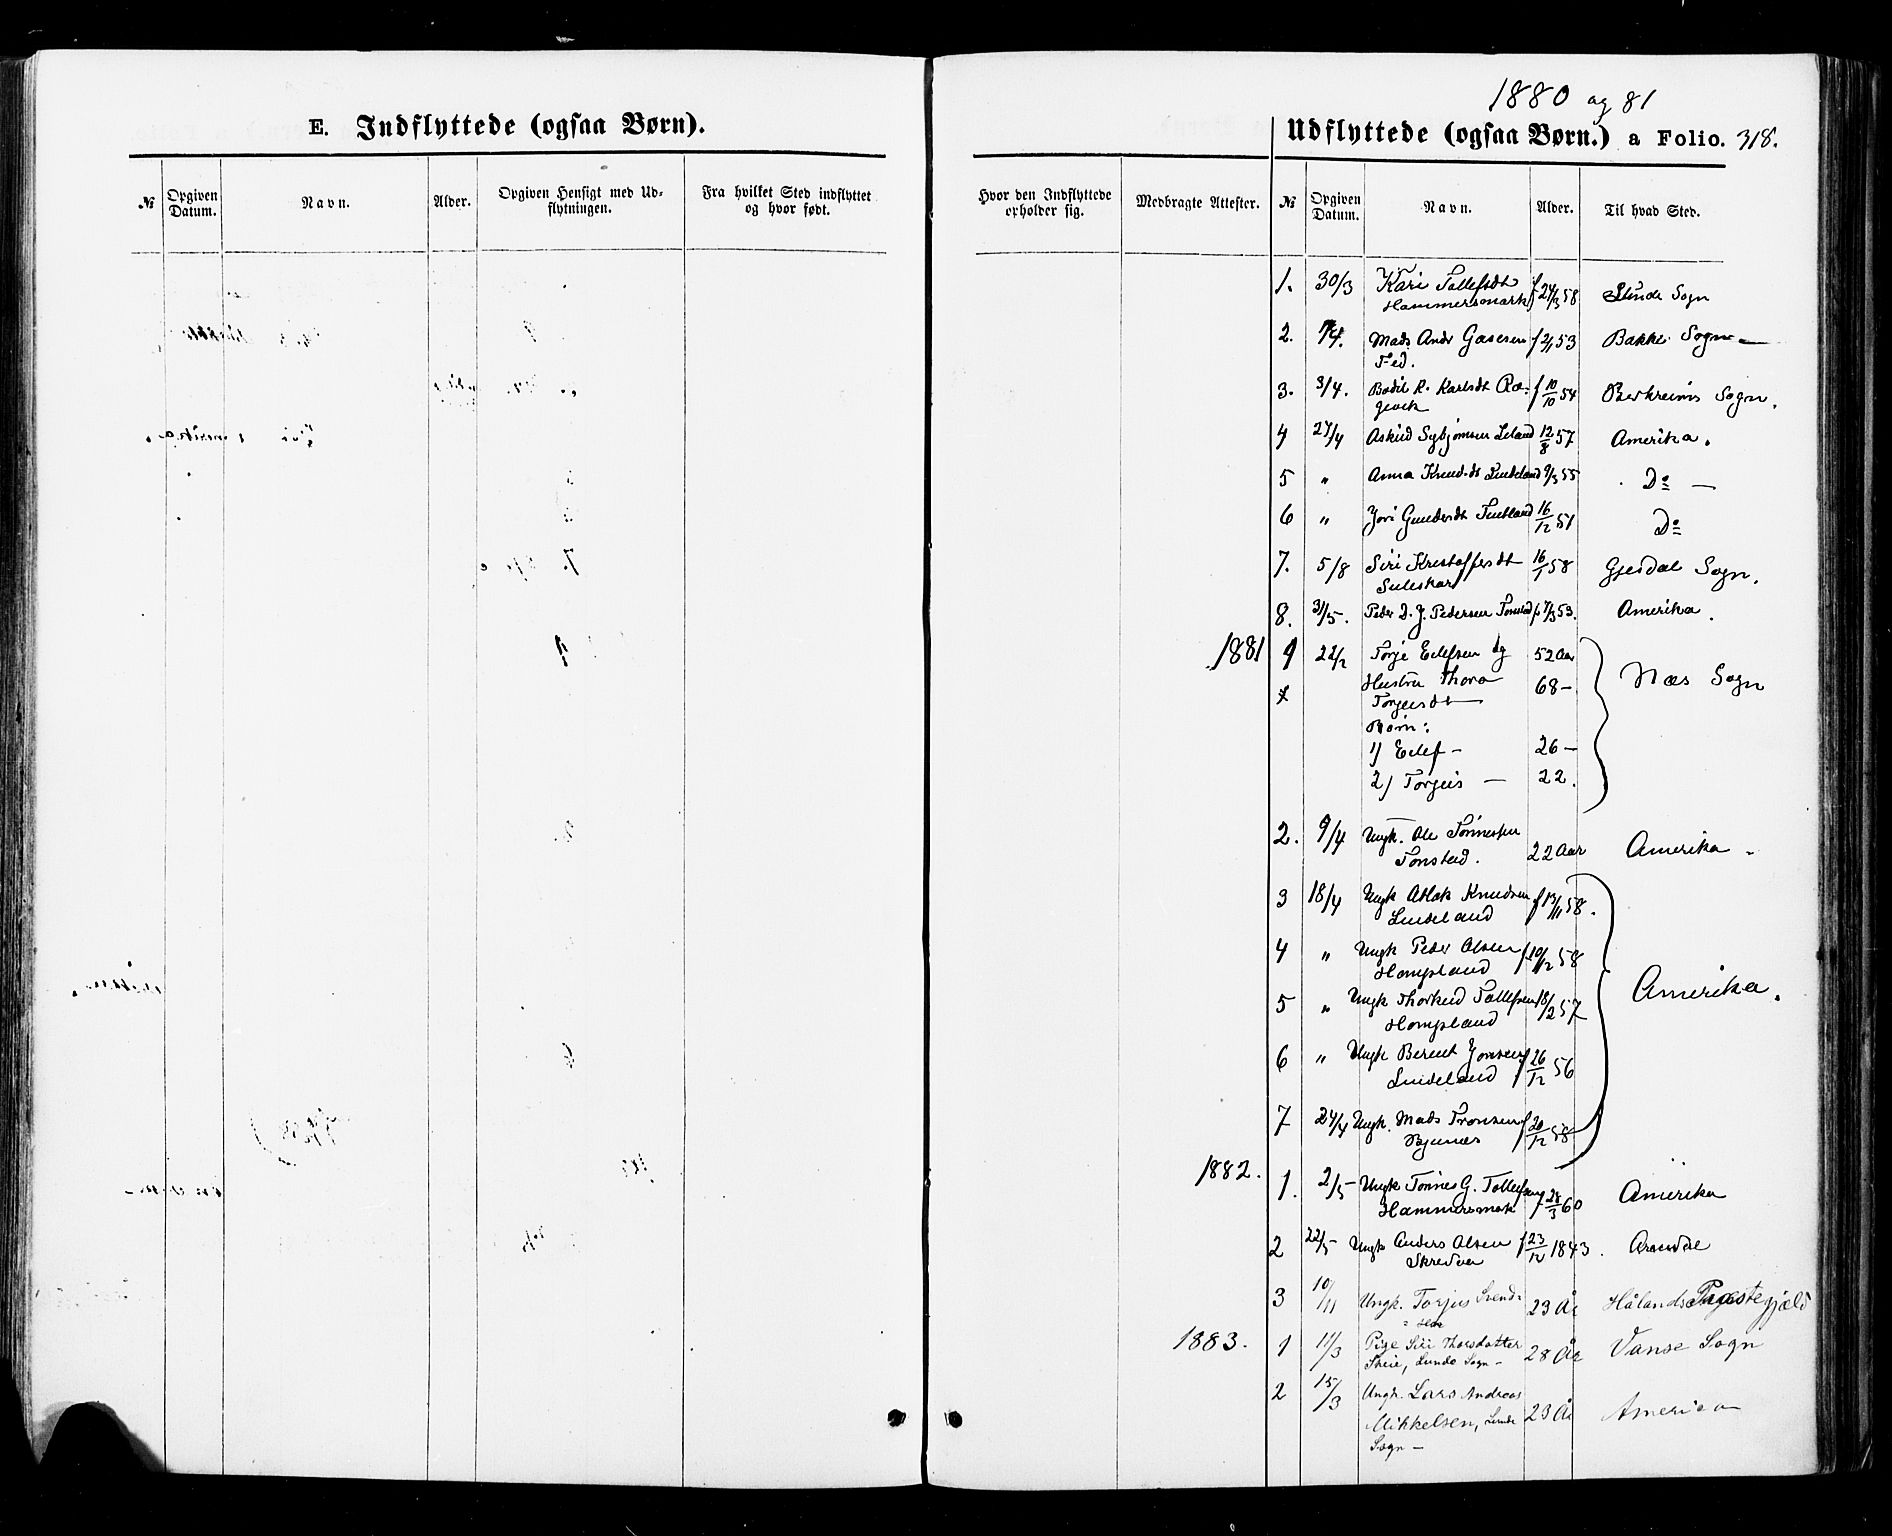 E. Indflyttede (ogsaa Børn).
№ Opgiven Datum. Navn. Alder. Opgiven Hensigt med Udflytningen. Fra hvilket Sted indflyttet og hvor født.
1880 og 81
Udflyttede (ogsaa Børn.) a Folio. 318.
Hvor den Indflyttede opholder sig. Medbragte Attester. № Opgiven Datum. Navn. Alder. Til hvad Sted.
1. 30/3 Kari Tollefsdt f 24/3 58 Lunde Sogn
Hammersmark
2. Mads Andr Gasesen f 2/1 53 Bakke Sogn
Fed.
3. 3/4. Bodil R. Karlsdt Ræ- f 10/10 54 Berkreims Sogn.
gevik
4 27/4 Askild Sybjørnsen Leland 12/8 57 Amerika.
5 " Anna Knudsdt Lindeland 9/3 55 Do —
6 " Jori Gundersdt 16/12 51 Do
7. 5/8 Siri Kristoffersdt 16/1 58 Gjesdal Sogn.
Suleskar
8. 31/5. Peder D. J. Pedersen Tonstad f 7/3 53. Amerika.
1881 1 22/2 Torje Eilefsen og 52 Aar Næs Sogn
Hustru Thora 68 —
Torgersdt
Børn:
1) Eilef — 26 —
2) Torjus — 22.
2. 9/4 Ungk. Ole Tønnessen
Tonstad. 22 Aar Amerika
3 18/4 Ungk Atlak Knudsen f 19/11 58. Amerika.
Lindeland
4 " Ungk Peder Olsen f 10/12 58
Hompland
5 " Ungk Thorkild Tollefsen 18/2 57
Hompland
6 " Ungk Berent Jonsen f 26/12 56
Lindeland
7 24/4 Ungk. Mads Tronsen f 20/12 58
Bjunes
1882. 1. 2/5 Ungk Tønnes G. Tollefsen f 28/3 60 Amerika
Hammersmark
2 22/5 Ungk Anders Olsen f 23/12 1843. Arendal
Skredvei
3 10/11 Ungk. Torjus Svend- 23 År Hålands Præstegjæld
1883. 1 11/3 Pige Siri Thorsdatter 28 År Vanse Sogn
Steie, Lunde Sogn —
2 15/3 Ungk. Lars Andreas
Mikkelsen, Lunde 23 År America
Sogn —